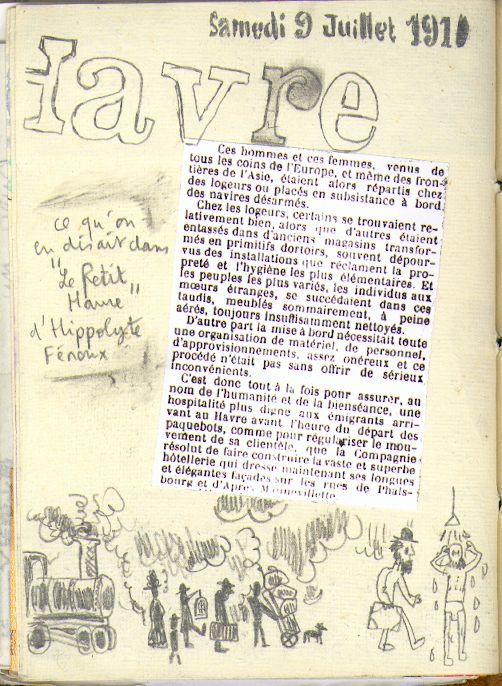 Samedi 9 Juillet 1910
Havre
Ces hommes et ces femmes, venus de
tous les coins de l'Europe, et même des fron-
tières de l'Asie, étaient alors répartis chez
des logeurs ou placés en subsistance à bord
des navires désarmés.
Chez les logeurs, certains se trouvaient re-
lativement bien, alors que d'autres étaient
entassés dans d'anciens magasins transfor-
més en primitifs dortoirs, souvent dépour-
vus des installations que réclament la pro-
preté et l'hygiène les plus élémentaires. Et
les peuples les plus variés, les individus aux
mœurs étranges, se succédaient dans ces
taudis, meublés sommairement, à peine
aérés, toujours insuffisamment nettoyés.
D'autre part la mise à bord nécessitait toute
une organisation de matériel, de personnel,
d'approvisionnements, assez onéreux et ce
procédé n'était pas sans offrir de sérieux
inconvénients.
C'est donc tout à la fois pour assurer, au
nom de l'humanité et de la bienséance, une
hospitalité plus digne aux émigrants arri-
vant au Havre avant l'heure du départ des
paquebots, comme pour régulariser le mou-
vement de sa clientèle, que la Compagnie
résolut de faire construire la vaste et superbe
hôtellerie qui dresse maintenant ses longues
et élégantes façades sur les rues de Phals-
bourg et d'Après Mannevillette
ce qu'on
en disait dans
"Le Petit
Havre"
d'Hippolyte
Fénoux